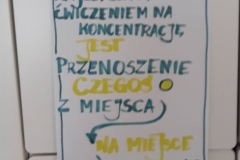 ĆWICZENIEM NA
KONCENTRACJĘ,
JEST
PRZENOSZENIE
CZEGOŚ
Z MIEJSCA
NA MIEJSCE